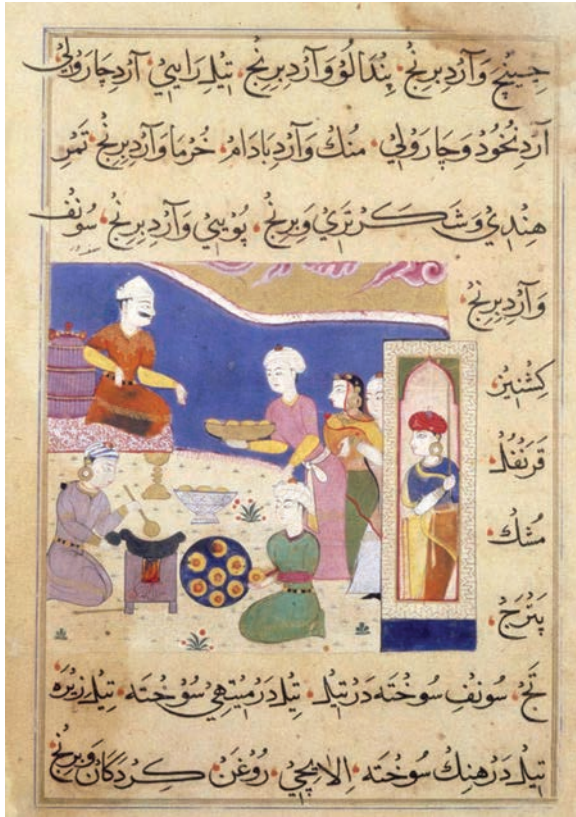 وَآرد بِرنج، پِنڈالُو وَآرد بِرِنج، تیل رَایِی، آرد چارولی
آردِ نخُود وَچارَولی، مُنک وَآردِ بادام، خُرما وَآردِ بِرنج، تَمر
هِندی وَشَکَر تَری وَبِرنج، پُویی وَآردِ بِرنج، سُونف
وَآردِ بِرنج،
کِشنِیز
قَرَنفُل
مُشک
پَترَج
تَج، سُونف سُوختَه دَر تیل، تیل دَر میتهی سُوختَه، تیل زِیرَه
تیل دَر هِنک سُوختَه، اِلایچی، رُوغَن کِردکان وَبِرنج